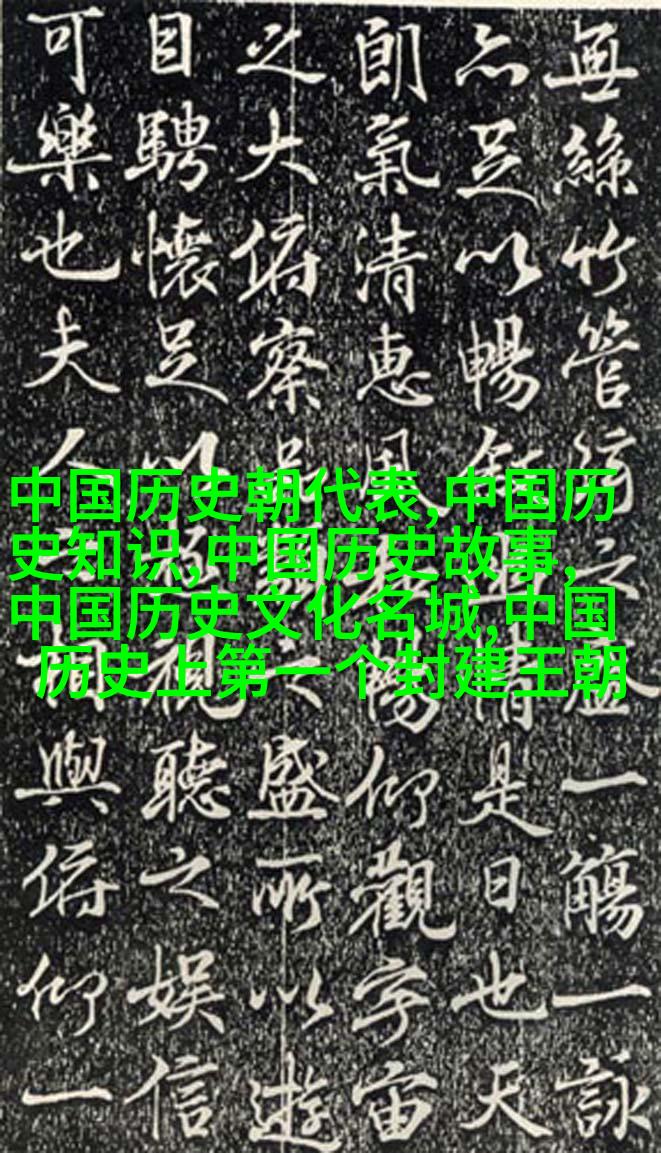 無絲竹管之盛一觴一詠
亦足以暢情是日也天
朗氣清惠風暢仰觀宇宙
之大俯察品之盛所以遊
目騁懷足以視聽之娱信
可樂也夫人相與俯仰一
中国历史朝代表,中国历
史知识,中国历史故事,
中国历史文化名城,中国
历史上第一个封建王朝